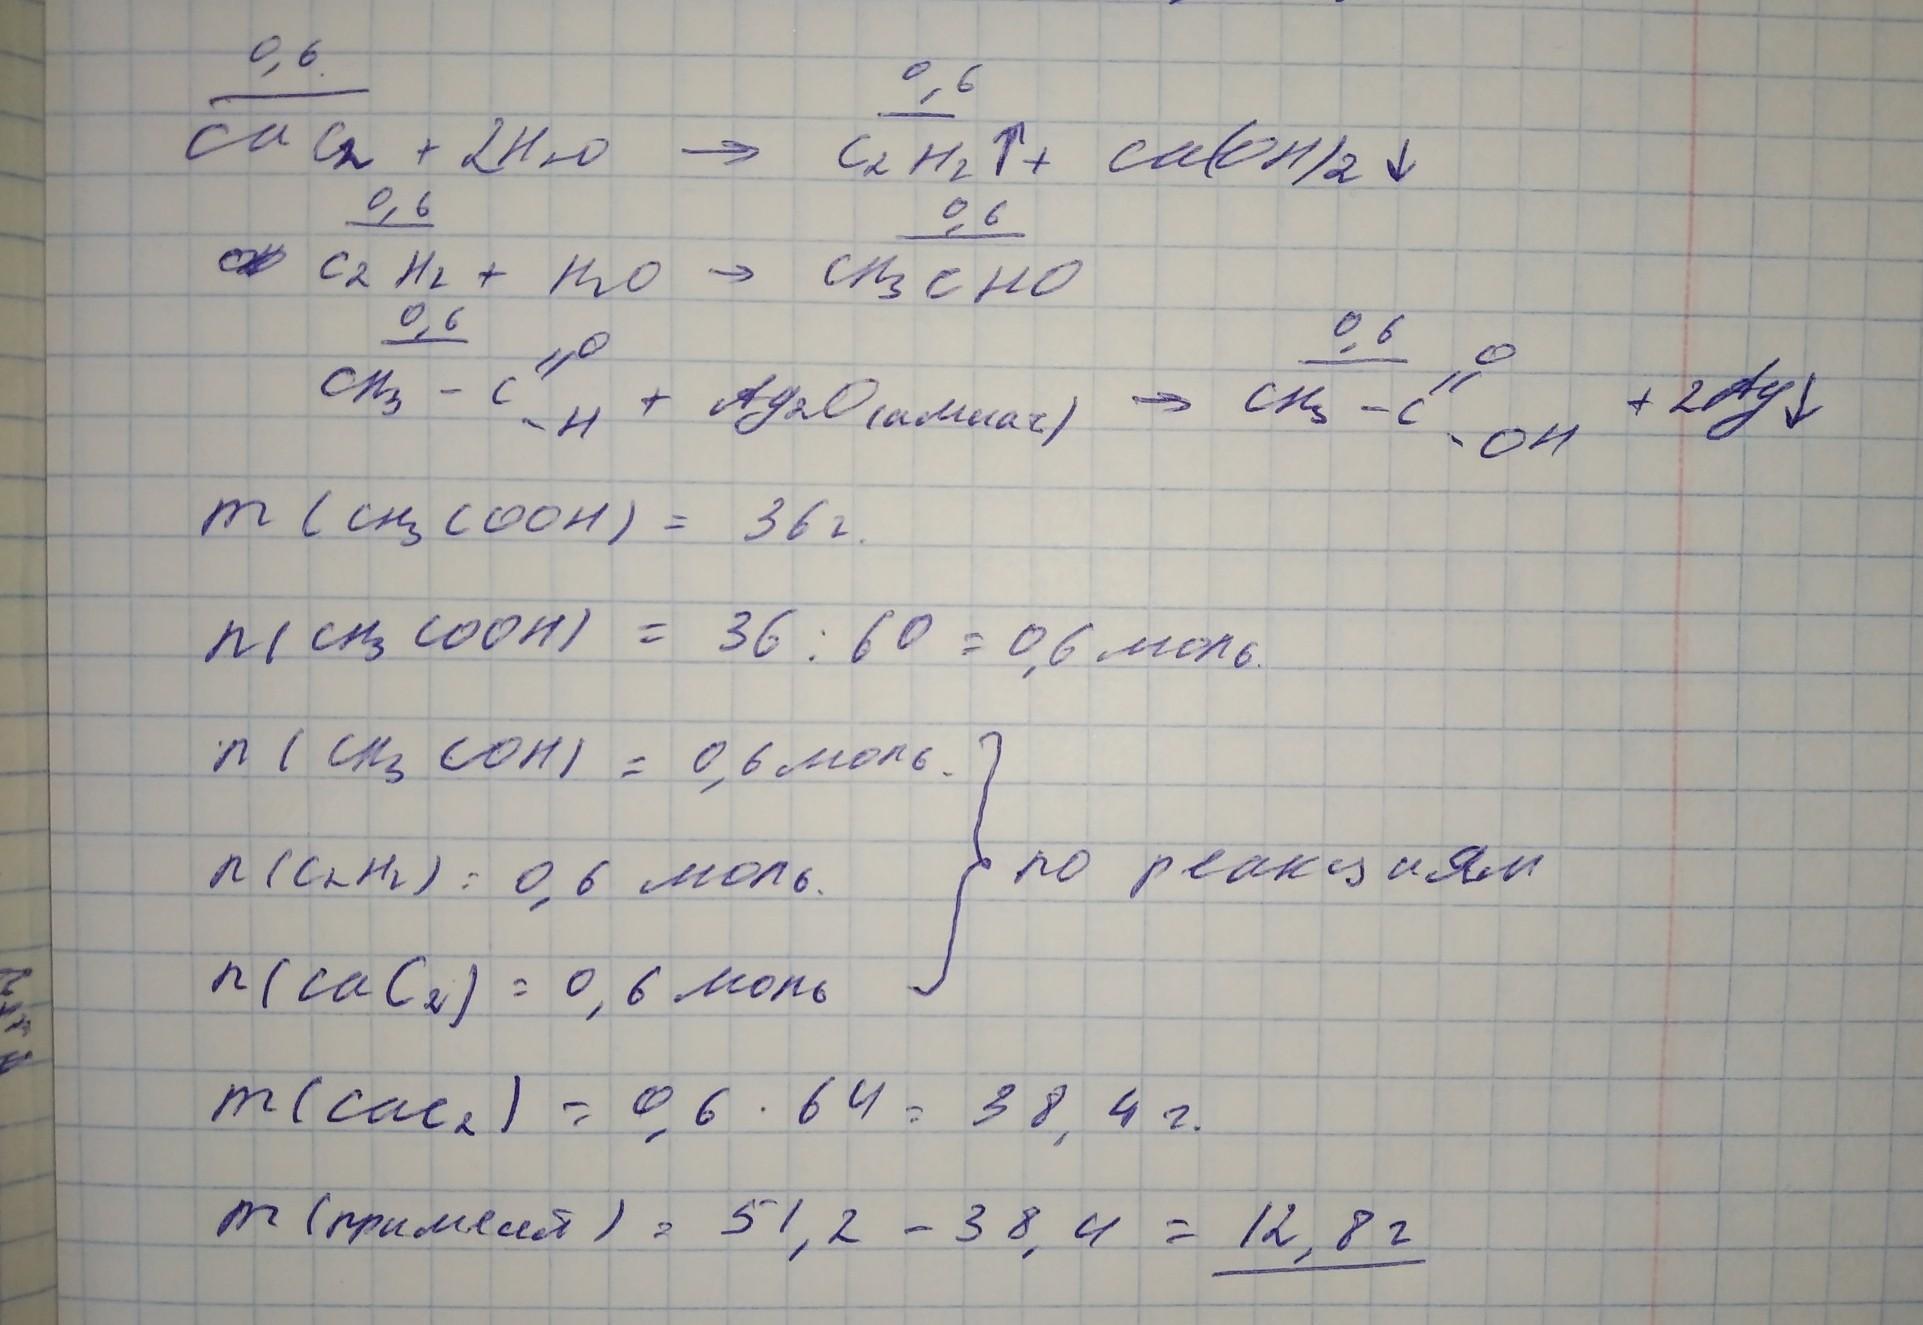 0,6
0,6
CaC2 + 2H2O → C2H2↑ + Ca(OH)2↓
0,6
0,6
C2H2 + H2O → CH3CHO
0,6
0,6
CH3 - C =O -H + Ag2O (аммиач) → CH3 - C =O -OH + 2Ag↓
m (CH3COOH) = 36г.
n (CH3COOH) = 36 : 60 = 0,6 моль.
n (CH3COH) = 0,6 моль.
n (C2H2) = 0,6 моль. } по реакциям
n (CaC2) = 0,6 моль
m (CaC2) = 0,6 · 64 = 38,4 г.
m (примесей) = 51,2 - 38,4 = 12,8г